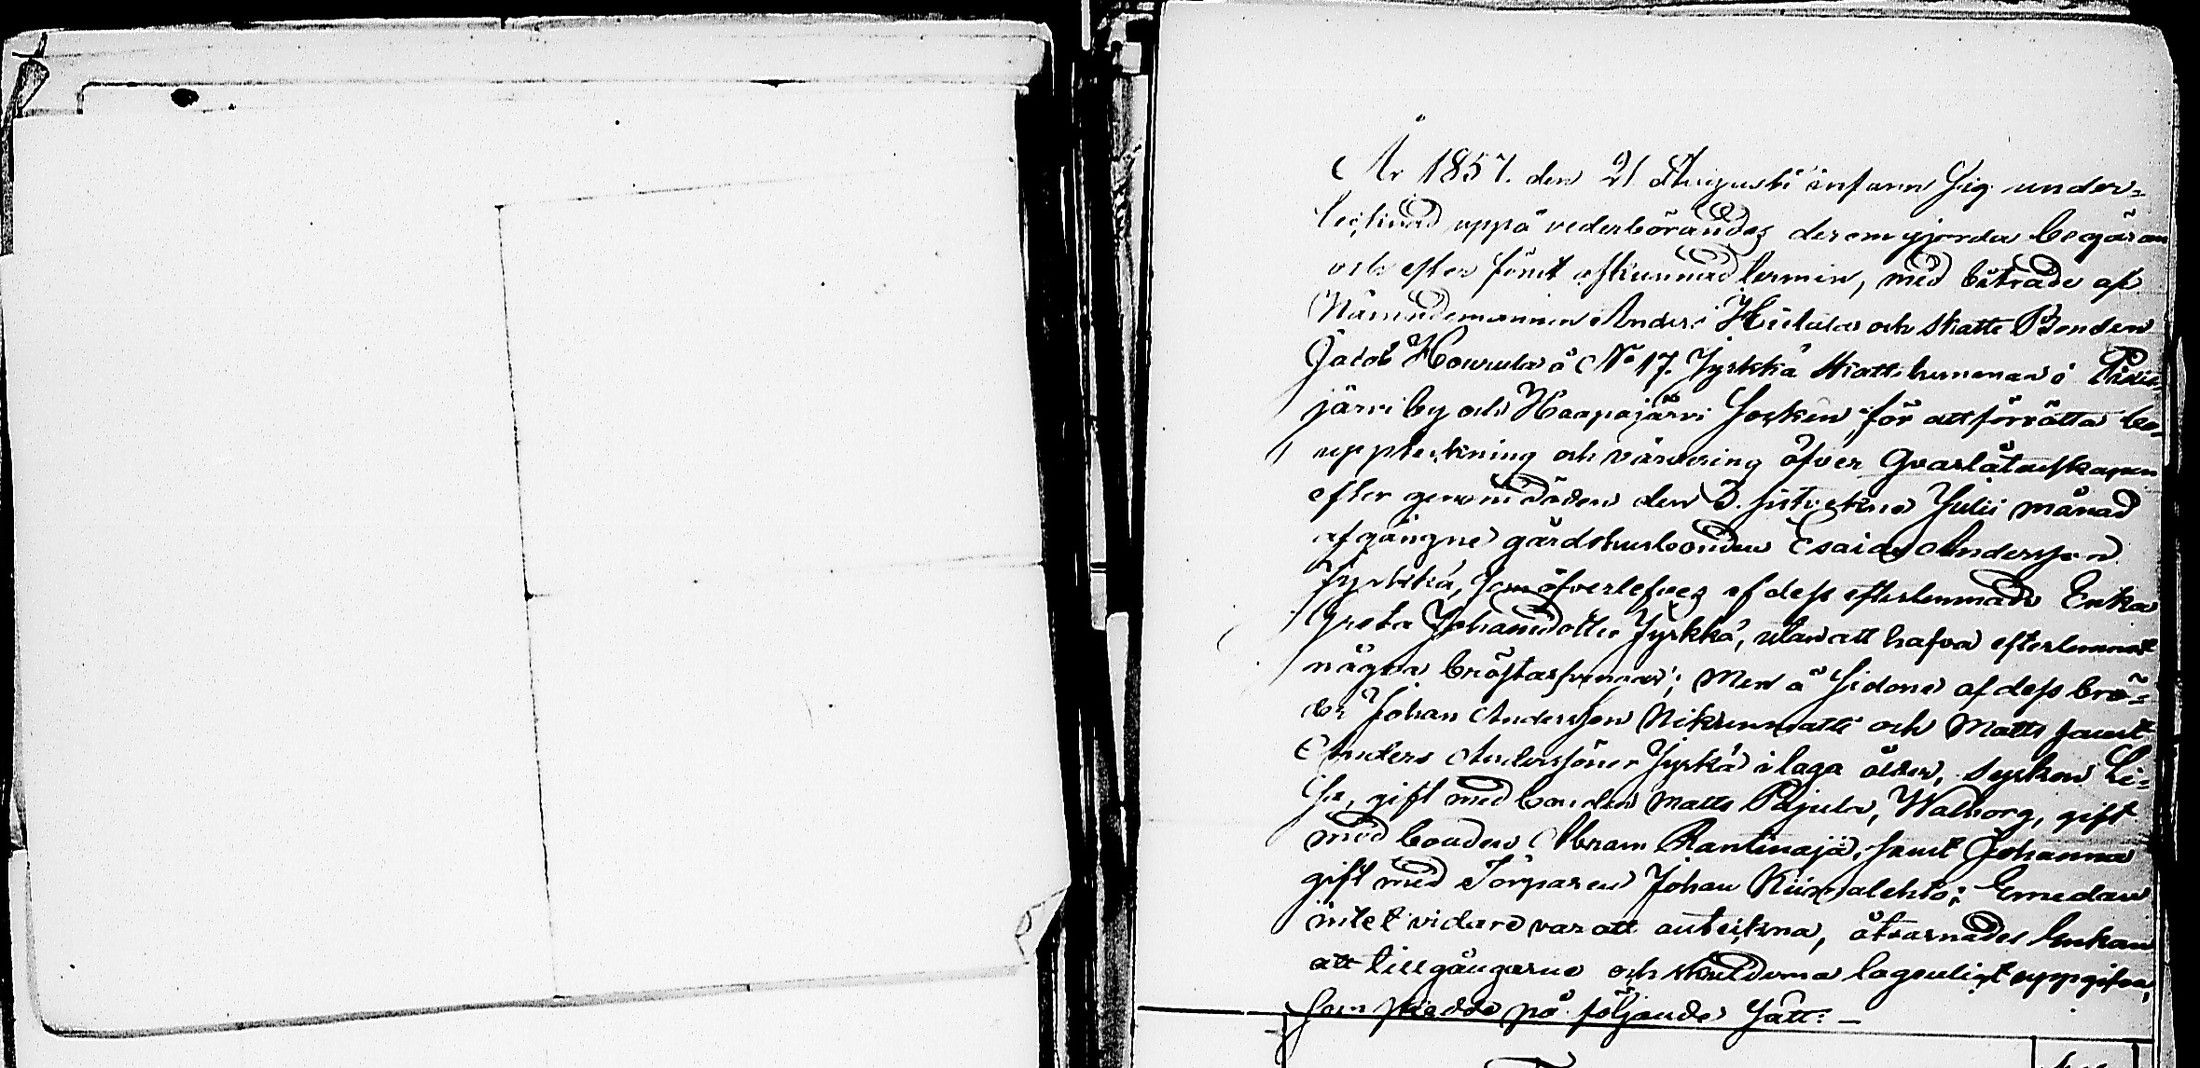 År 1857. den 21 Augusti infann sig under-
tecknad uppå vederbörandes derom gjorda begäran
och efter förut afkunnad termin, med biträde af
Nämndemannen Anders Hietala och Skatte Bonden
Jacob Hourula å No 17. Jyrkkä Skattehemman i
järvi by och Haapajärvi Socken för att förrätta bo-
uppteckning och värdering öfver qvarlåtenskapen
efter genom döden den 3. sistvekne Julii månad
afgångne gårdshusbonden Esaias Andersson
Jyrkkä, som öfverlefves af dess efterlemnade Enka
Greta Johansdotter Jyrkkä, utan att hafva efterlemnat
några bröstarfvingar; men å sidone af dess brö-
der Johan Andersson Nikunmatti och Matts samt
Anders Anderssöner Jyrkä i laga ålder, syskon Li-
sa, gift med bonden Matts Pajula, Walborg, gift
med bonden Abram Rantinaja, samt Johanna
gift med Torparen Johan Kiimalehto; Emedan
intet vidare var att anteckna, åtvarnades Enkan
att tillgångarne och skulderna lagenligt uppgifva,
som skedde på följande sätt: —